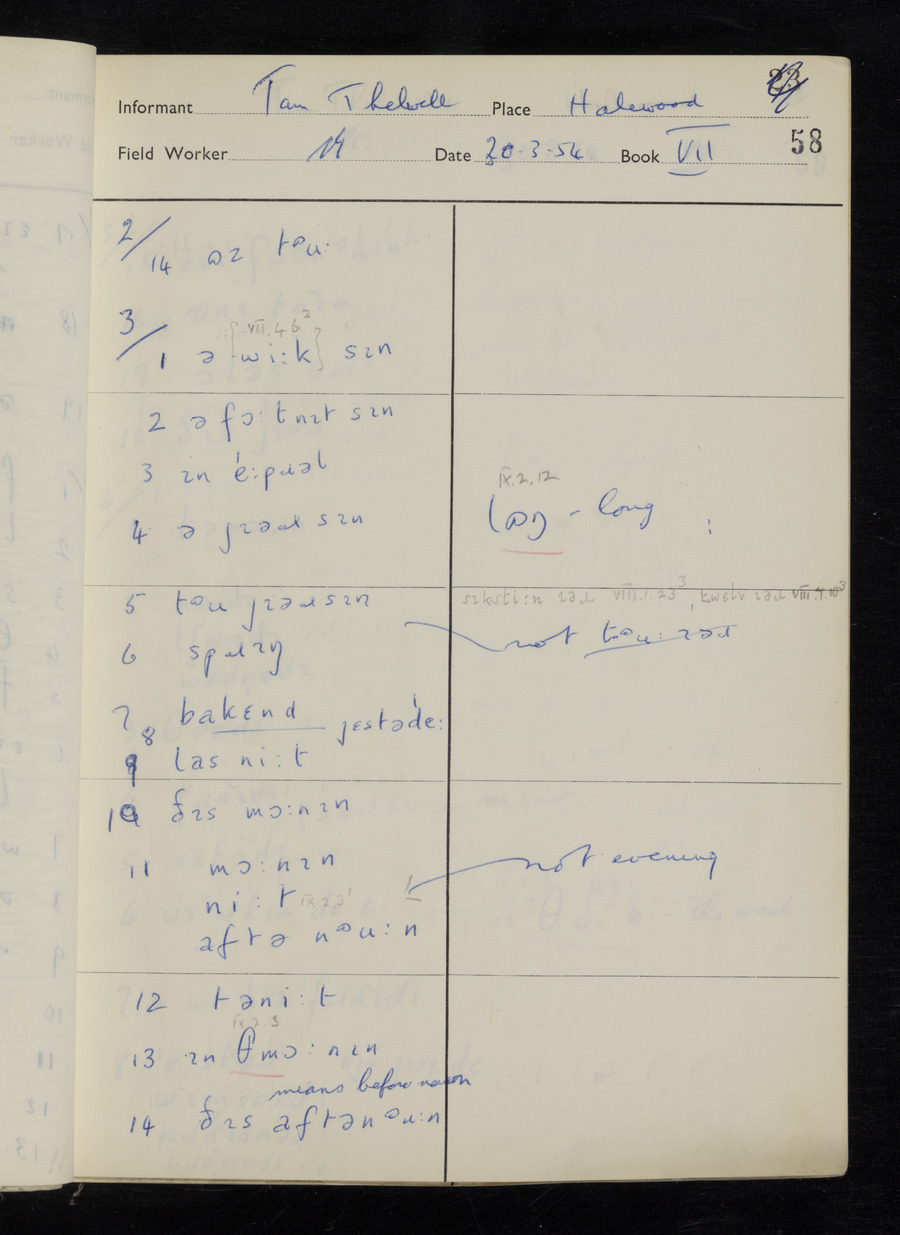 Informant Tom Thelwell Place Halewood
Field Worker Date 20-3-54 Book VII 58
2/
14 ɒz tᵊu:
3/
VII.4.6²
1 ə {wi:k} sɪn
2 ə fɔ:tnɪt sɪn
3 ɪn 'e:pɹəl
4 ə jɪəɹ sɪn
IX.2.12
lɒŋ - long
5 tᵊu jɪəɹsɪn
sɪksti:n ɪəɹ VIII.1.23³, twelv ɪəɹ VIII.9.10³
6 spɹɪŋ
not tᵊu: ɪəɹ
7 bakɛnd
8 jɛstə'de:
9 las ni:t
10 ðɪs mɔ:nɪn
11 mɔ:nɪn
not evening
ni:t IX.2.3¹
aftə nᵊu:n
12 təni:t
IX.2.3
13 ɪn θ mɔ:nɪn
means before noon
14 ðɪs aftənᵊu:n